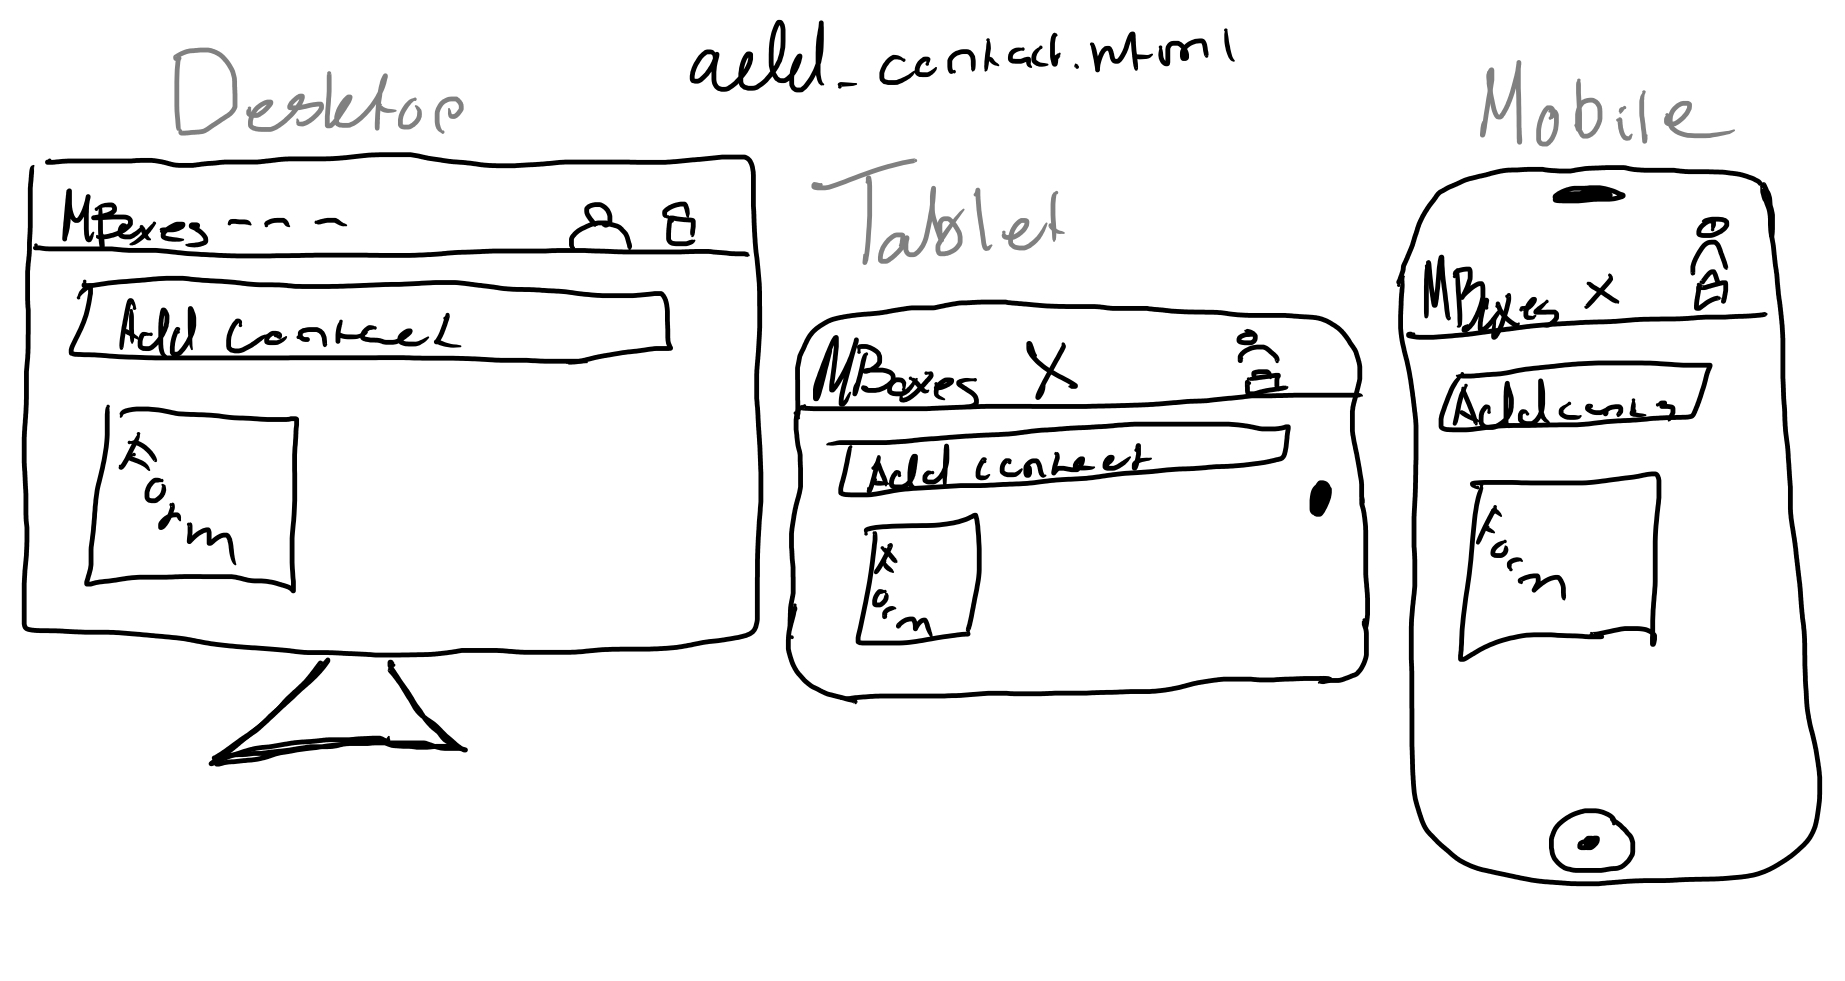 add_contact.html
Desktop
MBoxes - - -
Add contact
Form
Tablet
MBoxes X
Add contact
Form
Mobile
MBoxes X
Add
Form